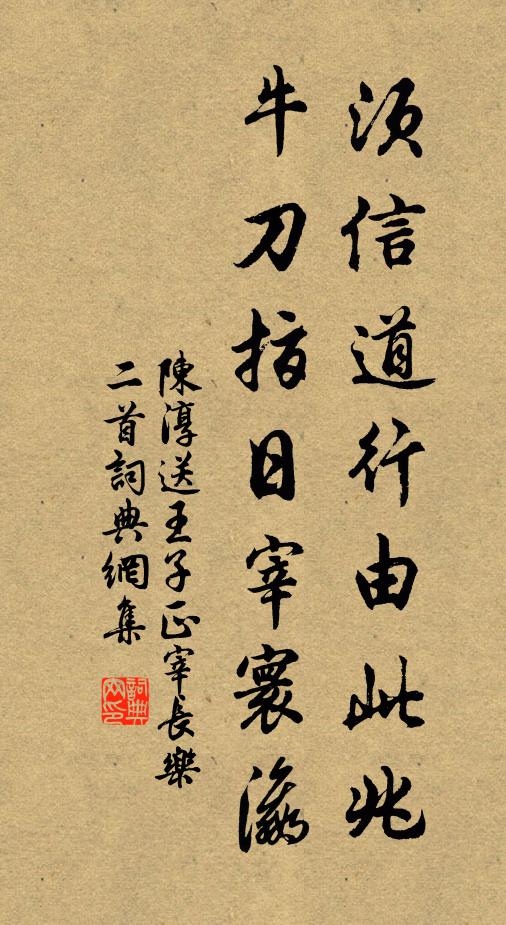 須信道行由此兆
牛刀指日宰寰瀛
陳淳送王子正宰長樂
二首詞典網集
詞典網印